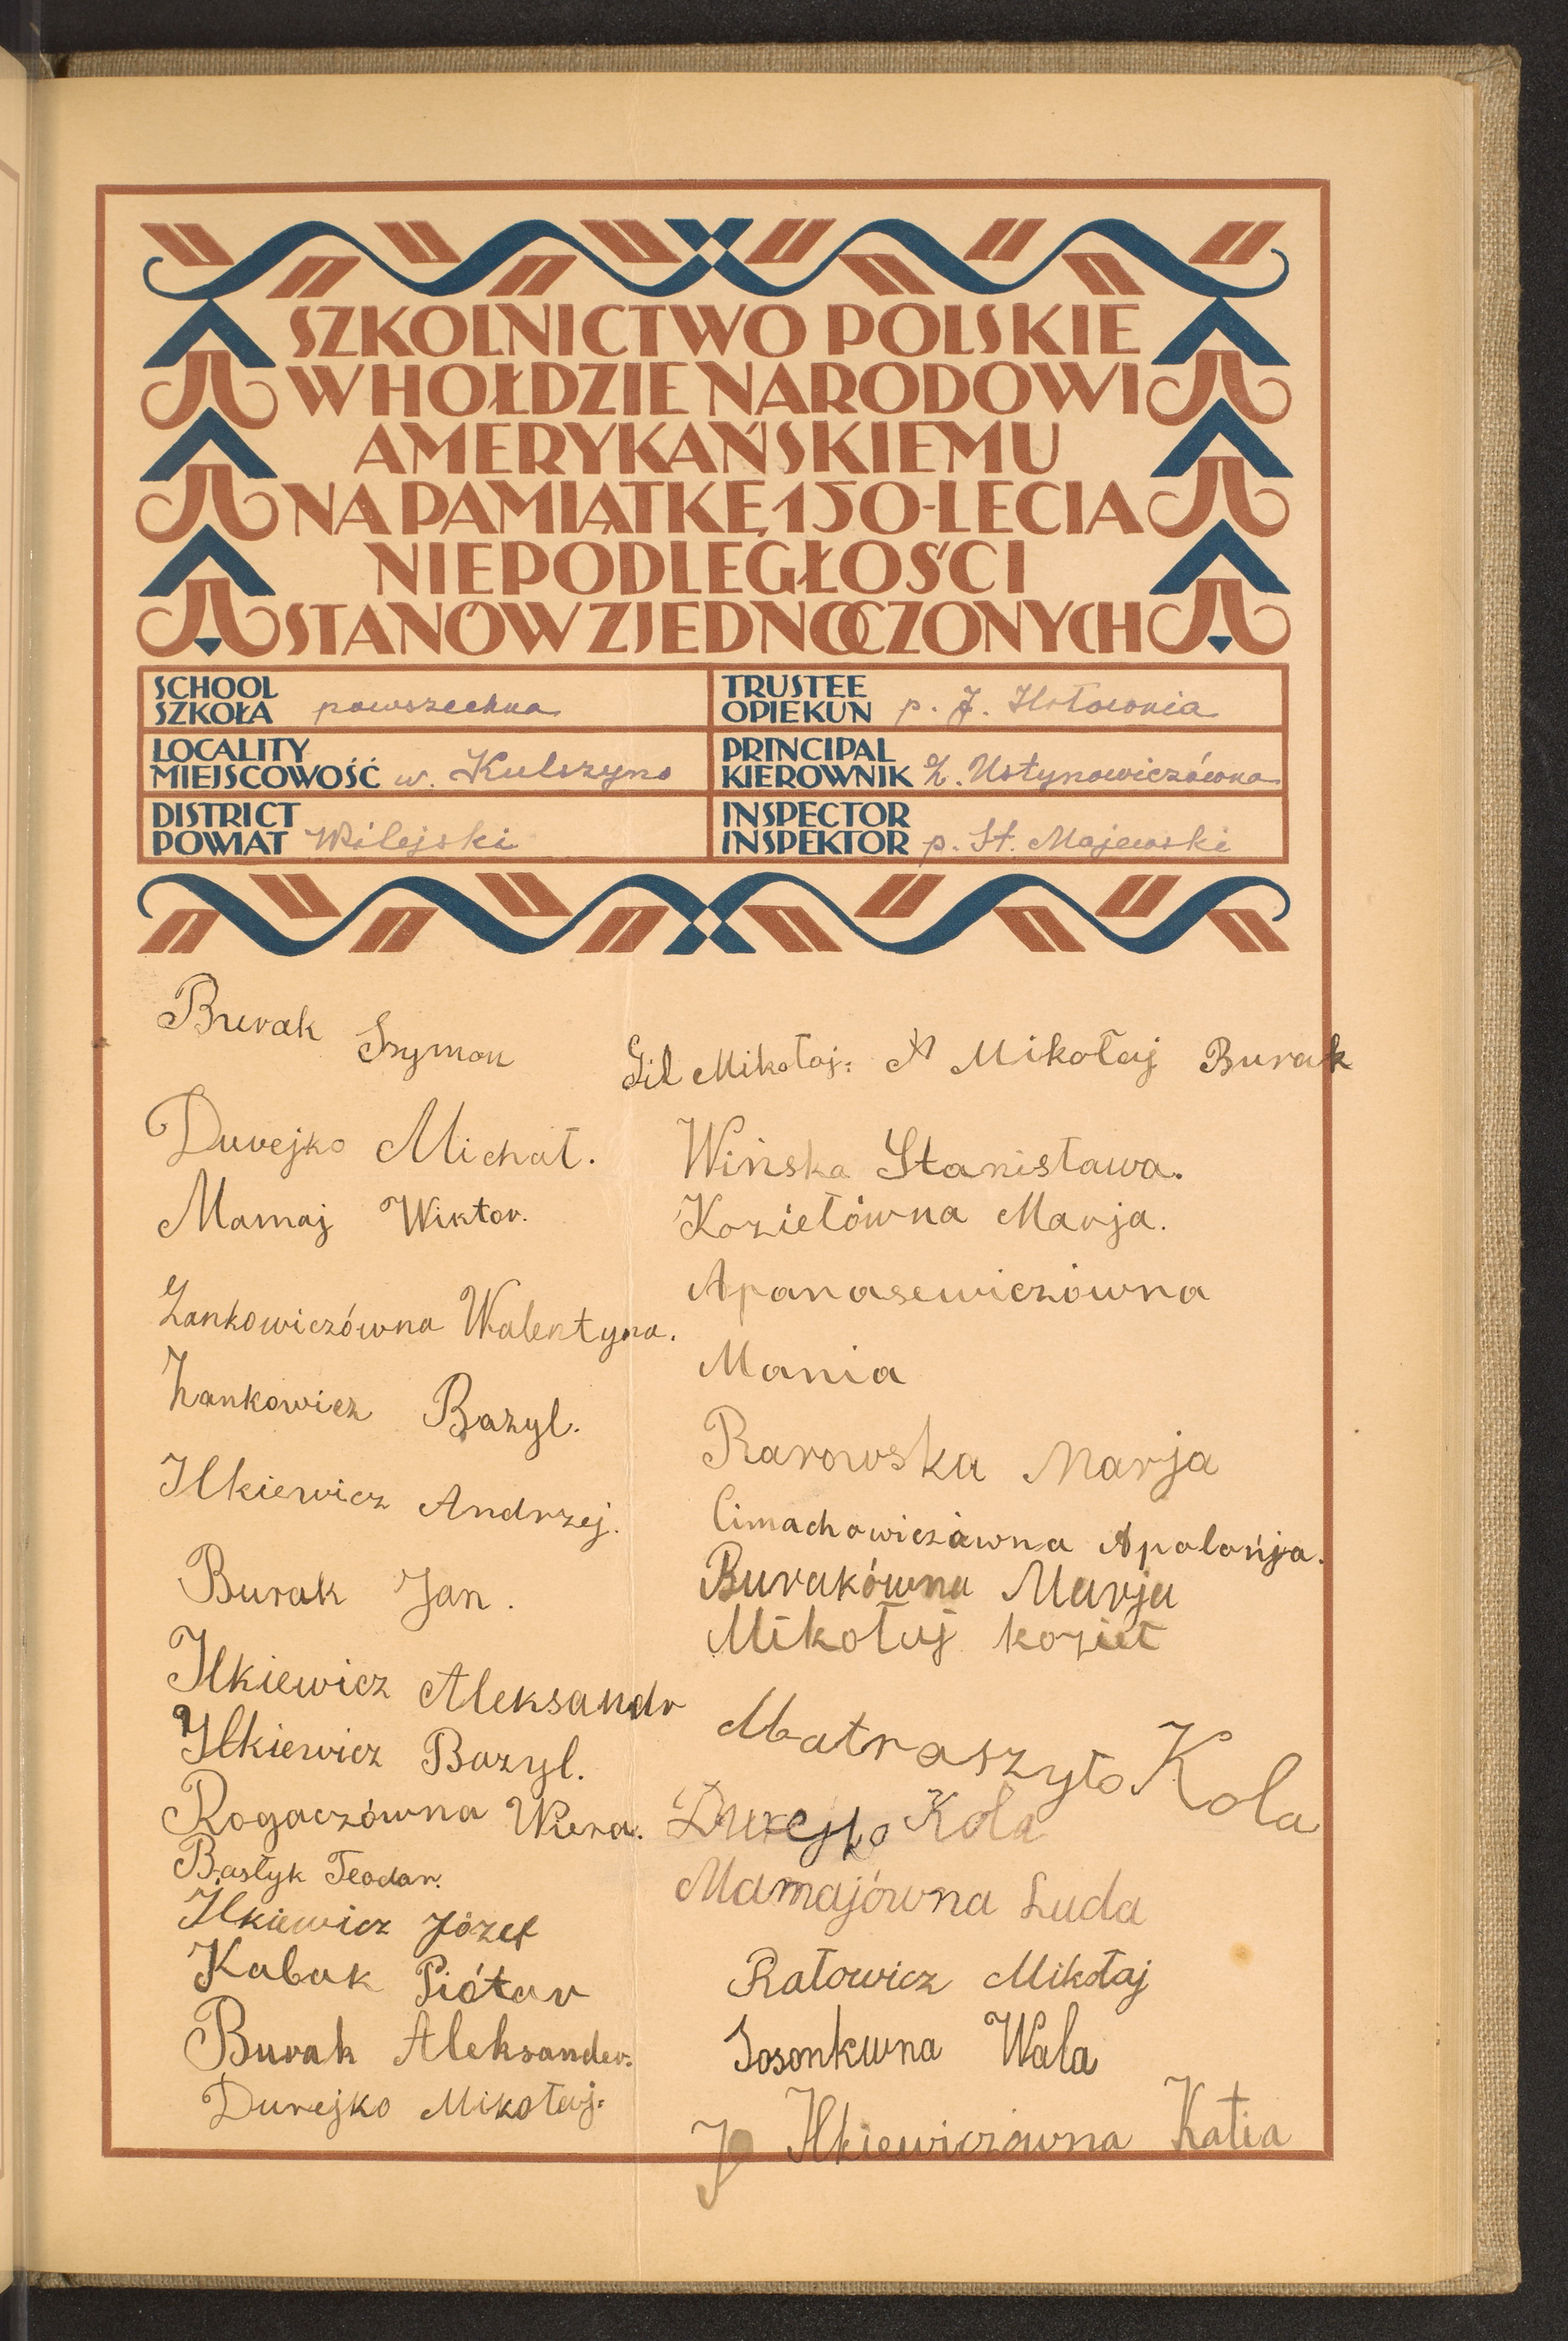 SZKOLNICTWO POLSKIE
W HOŁDZIE NARODOWI
AMERYKAŃSKIEMU
NA PAMIĄTKĘ 150-LECIA
NIEPODLEGŁOŚCI
STANÓW ZJEDNOCZONYCH
SCHOOL
SZKOŁA powszechna
TRUSTEE
OPIEKUN p. J. Hołownia
LOCALITY
MIEJSCOWOŚĆ w. Kulszyno
PRINCIPAL
KIEROWNIK Z. Ustynowiczówna
DISTRICT
POWIAT Wilejski
INSPECTOR
INSPEKTOR p. St. Majewski
Burak Szymon
Durejko Michał.
Mamaj Wiktor.
Żankowiczówna Walentyna.
Żankowicz Bazyl.
Ilkiewicz Andrzej.
Burak Jan.
Ilkiewicz Aleksandr
Ilkiewicz Bazyl.
Rogaczówna Wiera.
Bastyk Teodor.
Ilkiewicz Józef
Kabak Piótar
Burak Aleksander.
Durejko Mikołaj.
Gil Mikołaj. Mikołaj Burak
Wińska Stanisława.
Koziełówna Marja.
Apanasewiczówna
Mania
Rarowska Marja
Cimachowiczówna Apolońja.
Burakówna Marja
Mikołaj kozieł
Matraszyło Kola
Durejko Kola
Mamajówna Luda
Ratowicz Mikołaj
Sosonkwna Wala
Ilkiewiczówna Katia